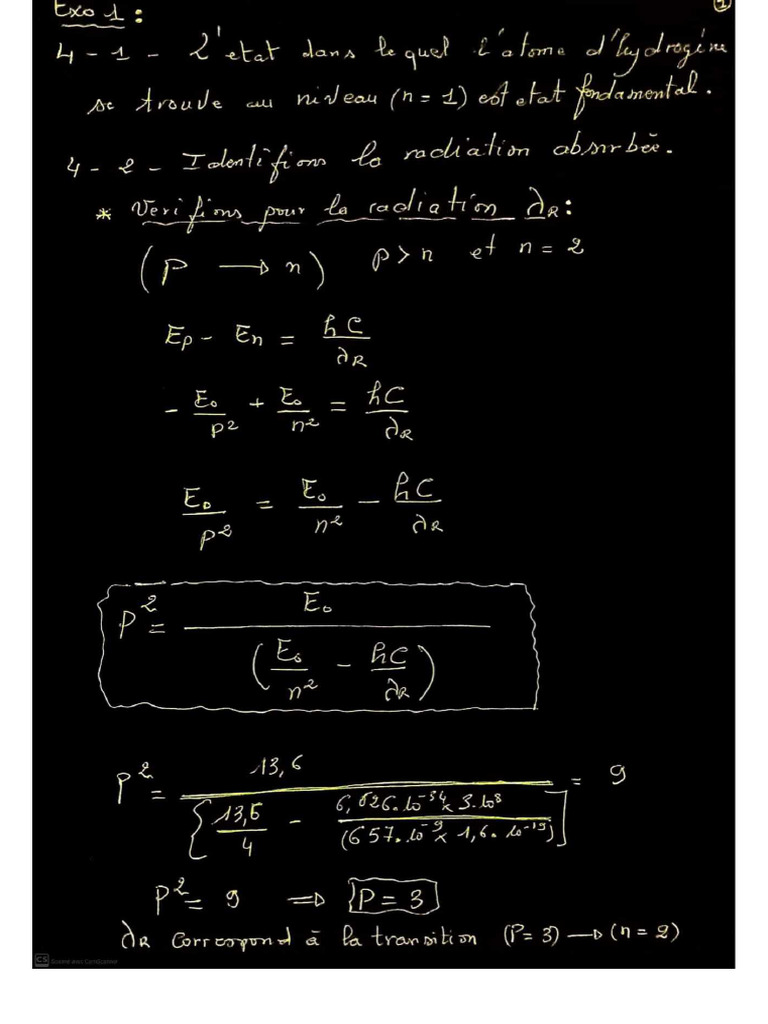 Exo 1 :
1
4 - 1 - L'etat dans lequel l'atome d'hydrogène
se trouve au niveau (n = 1) est etat fondamental.
4 - 2 - Identifions la radiation absorbée.
* Verifions pour la radiation λR :
(P → n) p > n et n = 2
Ep - En = hC / λR
- E₀/p² + E₀/n² = hC/λR
E₀/p² = E₀/n² - hC/λR
P² = E₀ / (E₀/n² - hC/λR)
P² = 13,6 / [13,6/4 - 6,626.10⁻³⁴ × 3.10⁸ / (657.10⁻⁹ × 1,6.10⁻¹⁹)] = 9
P² = 9 ⟹ P = 3
λR correspond à la transition (P = 3) → (n = 2)
CS Scanné avec CamScanner